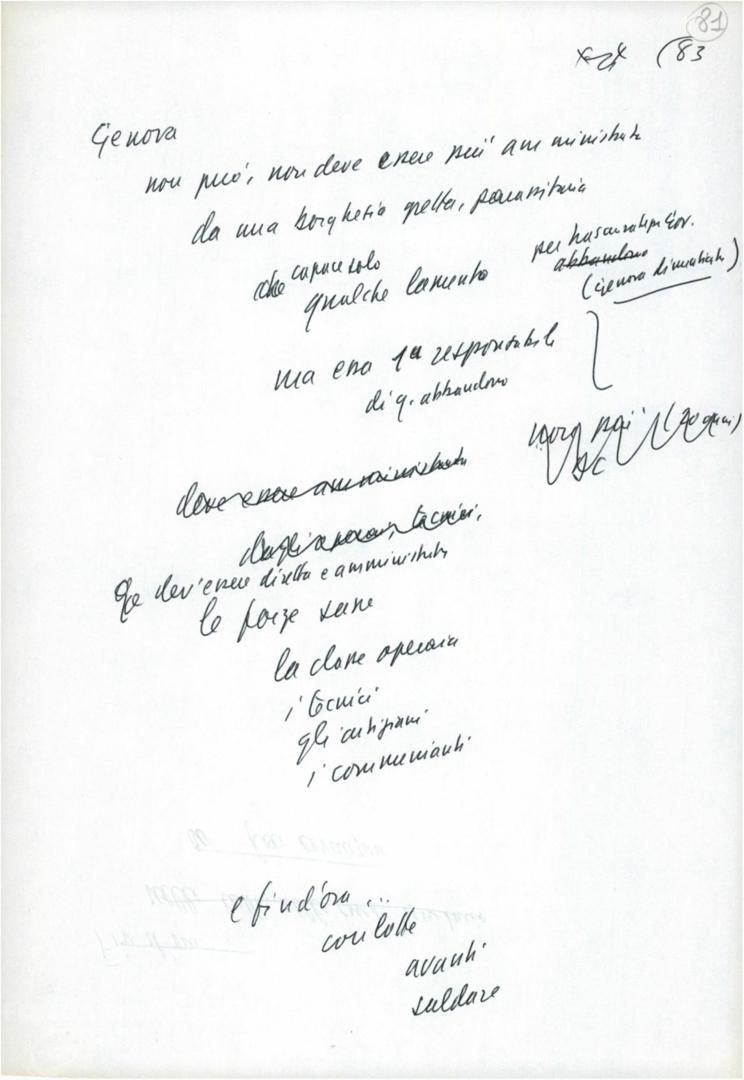 81
(83
Genova
non può, non deve essere più amministrata
da una borghesia gretta, parassitaria
che capace solo
qualche lamento
per trascuratezza Gov.
abbandono
(Genova dimenticata)
ma essa 1ª responsabile
di q. abbandono
poi (20 anni)
DC
deve essere amministrata
dagli operai, tecnici,
Ge dev'essere diretta e amministrata
le forze sane
la classe operaia
i tecnici
gli artigiani
i commercianti
e fin d'ora ...
con lotte
avanti
saldare